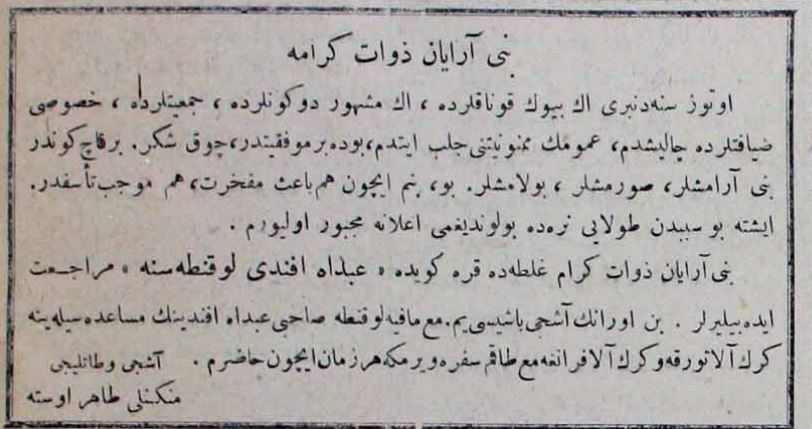 بنی آرایان ذوات کرامه
اوتوز سنه‌دنبری اك بیوك قوناقلرده ، اك مشهور دوکونلرده ، جمعیتلرده ، خصوصی
ضیافتلرده چالیشدم، عمومك ممنونیتنی جلب ایتدم، بوده بر موفقیتدر، چوق شکر. بر قاچ کوندر
بنی آرامشلر، صورمشلر ، بولامشلر. بو، بنم ایچون هم باعث مفخرت، هم موجب تأسفدر.
ایشته بو سببدن طولایی نره‌ده بولوندیغمی اعلانه مجبور اولیورم .
بنی آرایان ذوات کرام غلطه‌ده قره کویده « عبداه افندی لوقنطه‌سنه » مراجعت
ایده‌بیلیرلر . بن اورانك آشجی باشیسی‌یم. مع مافیه لوقنطه صاحبی عبداه افندینك مساعده‌سیله ینه
کرك آلاتورقه و کرك آلافرانغه مع طاقم سفره ویرمکه هر زمان ایچون حاضرم .
آشجی وطاتلیجی
منکنلی طاهر اوسته